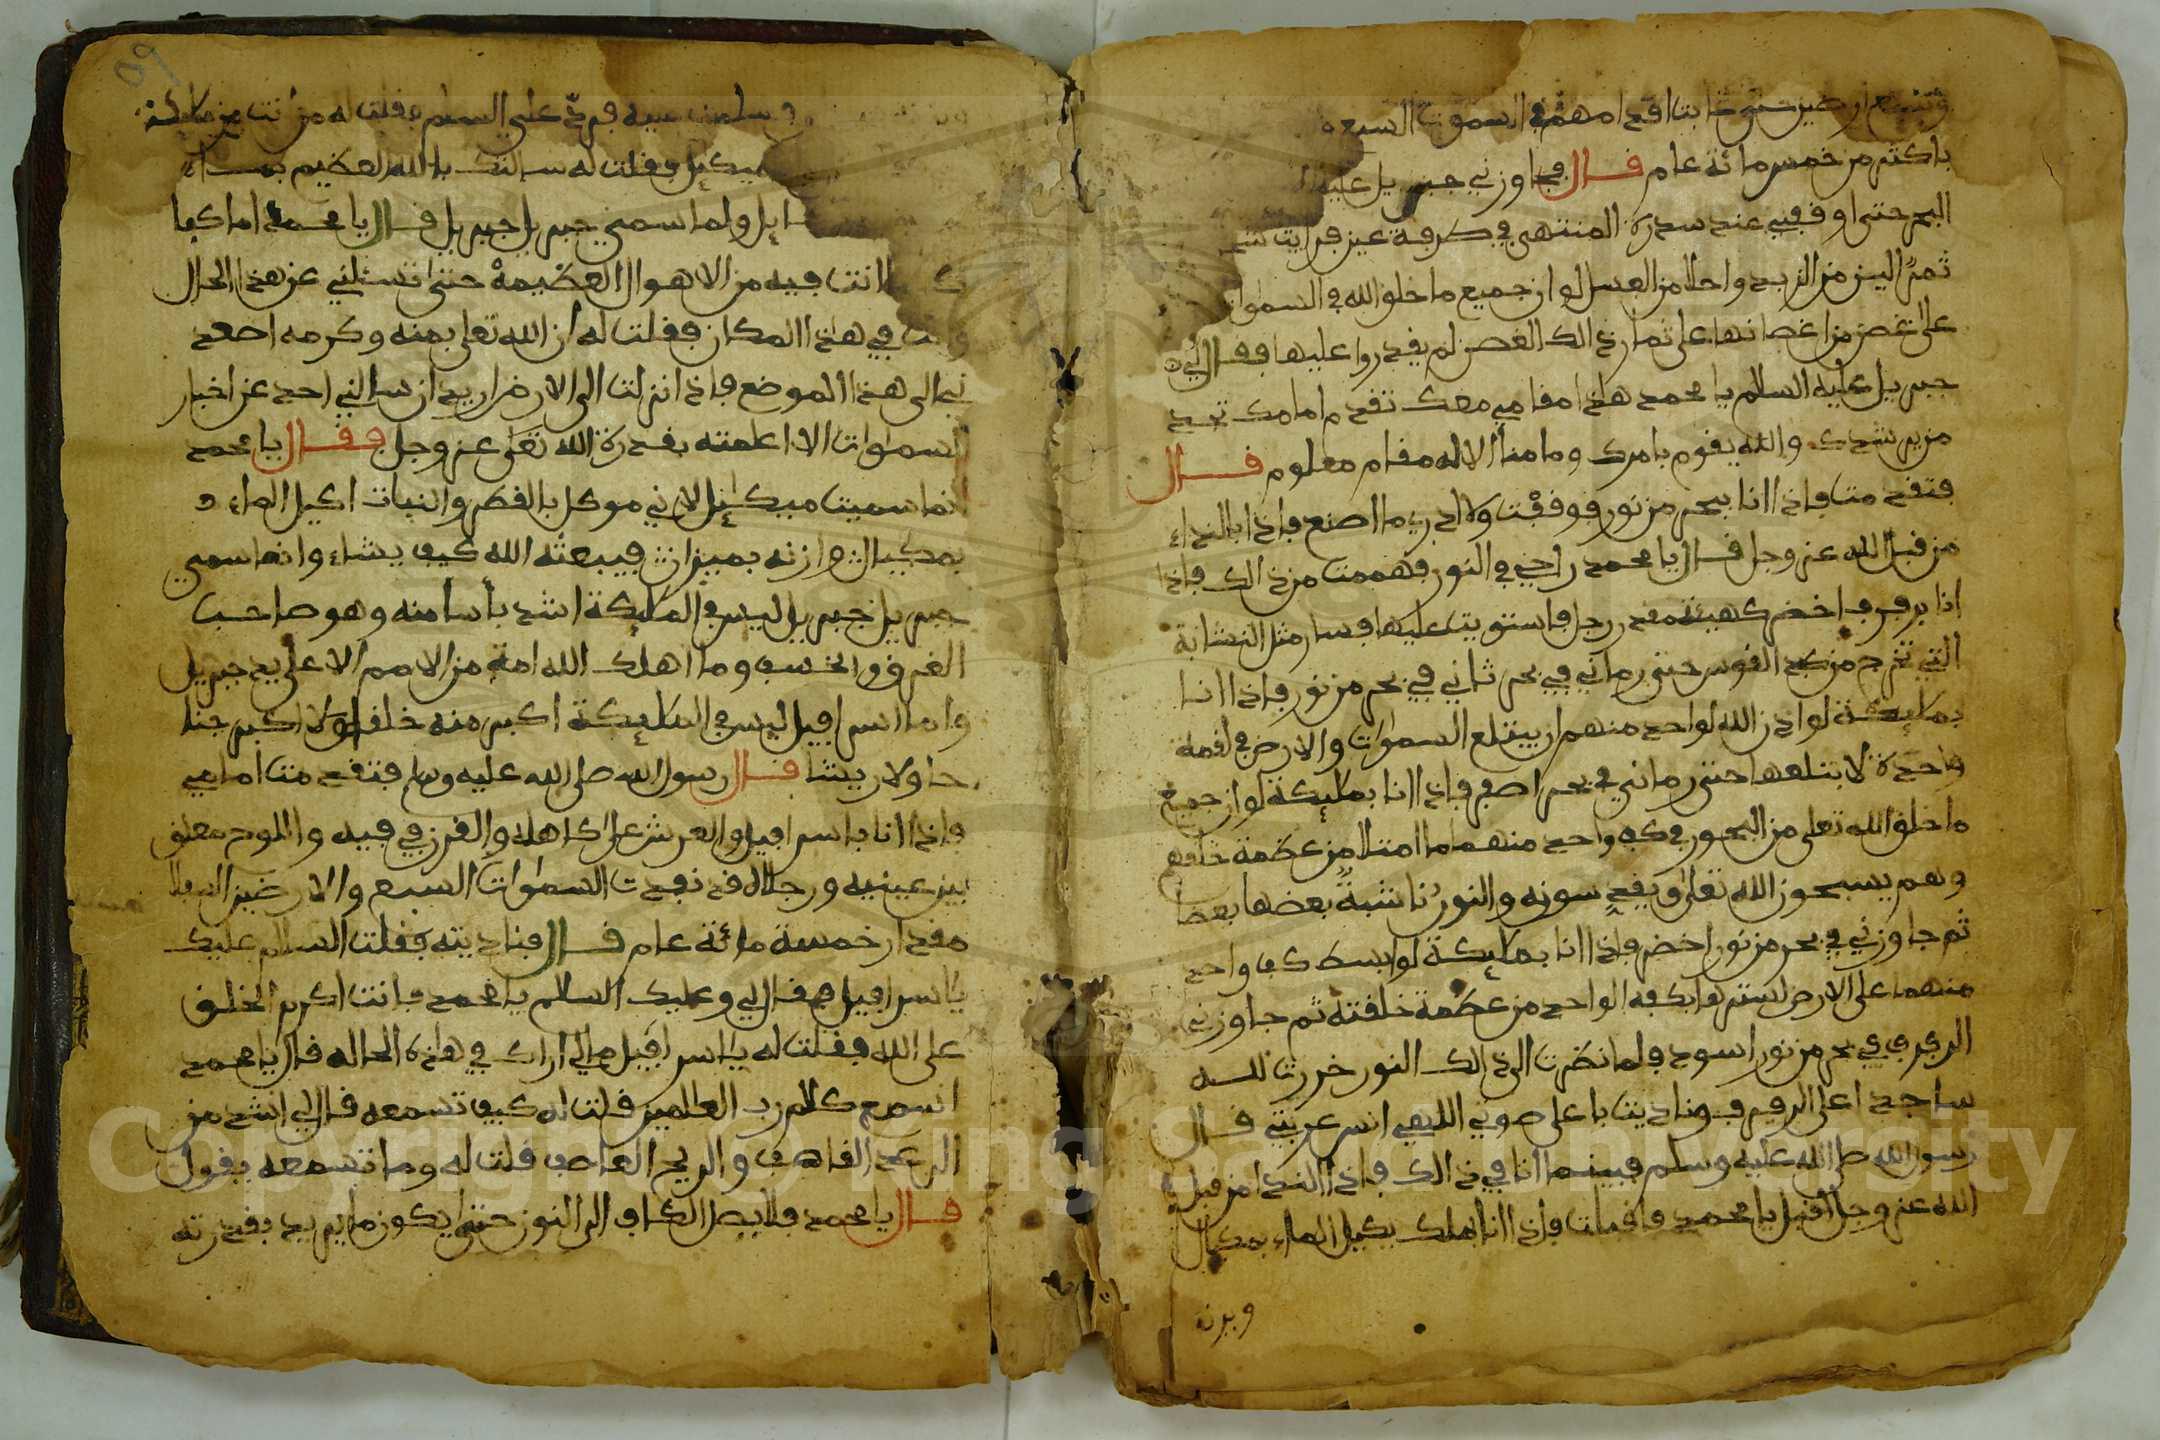 باكثر من خمس مائة عام قال فجاوزني جبريل عليه
البحر حتى اوقفني عند سدرة المنتهى في طرفة عين فرايت
ثمرًا الين من الزبد واحلا من العسل لو ان جميع ما خلق الله في السموات
على غصن من اغصانها على ثمار ذالك الغصن لم يقدروا عليها فقال لي
جبريل عليه السلام يا محمد هاذا مقامي معك تقدم امامك تجد
من يرشدك والله يقوم بامرك وما منا الا له مقام معلوم قال
فتقدمت فاذا انا ببحر من نور فوقفت ولا ادري ما اصنع فاذا بالنداء
من قبل الله عز وجل قال يا محمد زاجني في النور ففهمت من ذالك فاذا
انا برفرف اخضر كهيئة مقعد رجل فاستويت عليها فسار مثل النشابة
التي تخرج من كبد القوس حتى رماني في بحر ثاني في بحر من نور فاذا انا
بملايكة لو اذن الله لواحد منهم ان يبتلع السموات والارض في لقمة
واحدة لابتلعها حتى رماني في بحر اصفر فاذا انا بملايكة لو ان جميع
ما خلق الله تعلى من البحور في كف واحد منهم ما امتلا من عظمة خلقهم
وهم يسبحون الله تعلى ويقدسونه والنور
ثم جاوزني في بحر من نور اخضر فاذا انا بملايكة لو ابسط كف واحد
منهم على الارض لسترها بكفه الواحد من عظمة خلقته ثم جاوزني
الرفرف في بحر من نور اسود فلما نظرت الى ذالك النور خررت لله
ساجدا على الرفرف وناديت باعلى صوتي اللهم انس غربتي قال
رسول الله صلى الله عليه وسلم فبينما انا في ذالك فاذا النداء من قبل
الله عز وجل اقبل يا محمد فاقبلت فاذا انا بملك يكيل الماء بمكيال
ويزنه
وسلمت عليه فرد علي السلم فقلت له من انت من ملايكة
ميكيل فقلت له سالتك بالله العظيم
ولما سمي جبريل جبريل قال يا محمد اما كفا
انت فيه من الاهوال العظيمة حتى تسئلني عن هذا الحال
وانت في هاذا المكان فقلت له ان الله تعلى بمنه وكرمه اصعد
ني الى هذا الموضع فاذا نزلت الى الارض اريد ان سالني احد عن اخبار
السموات الا اعلمته بقدرة الله تعلى عز وجل فقال يا محمد
انما سميت ميكايل لاني موكل بالقطر والنبات اكيل الماء
بمكيال وازنه بميزان فيبعثه الله كيف يشاء وانما سمي
جبريل جبريل ليس في الملايكة اشد بأسا منه وهو صاحب
الغرق والخسف وما اهلك الله امة من الامم الا على يد جبريل
واما اسرافيل ليس في الملايكة اكبر منه خلقا ولا اكبر جنا
حا ولا ريشا قال رسول الله صلى الله عليه وسلم فتقدمت امامي
فاذا انا باسرافيل والعرش على كاهله والقرن في فيه واللوح معلق
بين عينيه ورجلاه قد نفدت السموات السبع والارضين السفلا
مقدار خمسة مائة عام قال فناديته فقلت السلام عليك
يا اسرافيل فقال لي وعليك السلام يا محمد فانت اكرم الخلق
على الله فقلت له يا اسرافيل مالي اراك في هاذه الحاله قال يا محمد
اسمع كلام رب العالمين قلت له كيف تسمعه قال لي اشد من
الرعد القاهف والريح العاصف قلت له وما تسمعه يقول
قال يا محمد فلا يصل الكاف الى النون حتى يكون ما يريد بقدرته